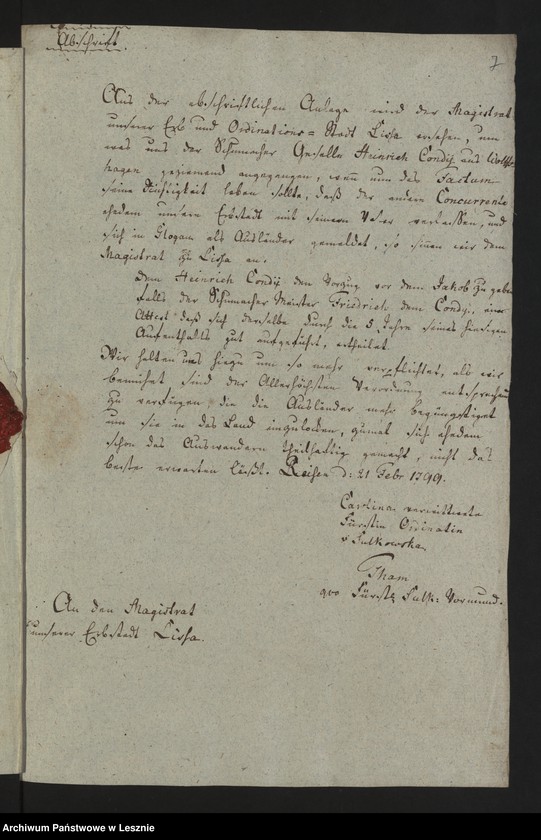 Abschrift.
7
Aus der abschriftlichen Anlage wird der Magistrat
unserer Erb und Ordinations = Stadt Lissa ersehen, um
was uns der Schumacher Geselle Heinrich Condÿ aus
hagen geziemend angegangen, wenn nun das Factum
seine Richtigkeit haben sollte, daß der andere Concurrente
ehedem unsere Erbstadt mit seinem Vater verlassen, und
sich in Glogau als Ausländer gemeldet, so sinnen wir dem
Magistrat zu Lissa an.
dem Heinrich Condÿ den Vorzug vor dem Jakob zu geben
falls der Schumacher Meister Friedrich dem Condÿ, einen
Attest daß sich derselbe durch die 5 Jahre seines hiesigen
Aufenthalts gut aufgeführt, ertheilet.
Wir halten uns hiezu um so mehr verpflichtet, als wir
bemühet sind der Allerhöchsten Verordnung entsprechend
zu verfügen, die die Ausländer mehr begünstiget
um sie in das Land einzulocken, zumal sich ehedem
schon das Auswandern theilhaftig gemacht, nicht das
beste erwarten läßt. Reisen d: 21 Febr 1799.
Carolina verwittwete
Fürstin Ordinatin
v Sulkowska
Tham
qvo Fürstl Sulk: Vormund.
An den Magistrat
unserer Erbstadt Lissa.
Archiwum Państwowe w Lesznie